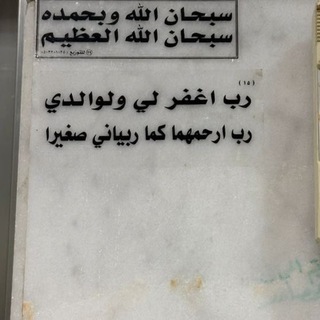 سبحان الله وبحمده
سبحان الله العظيم
(١٥)
رب اغفر لي ولوالدي
رب ارحمهما كما ربياني صغيرا